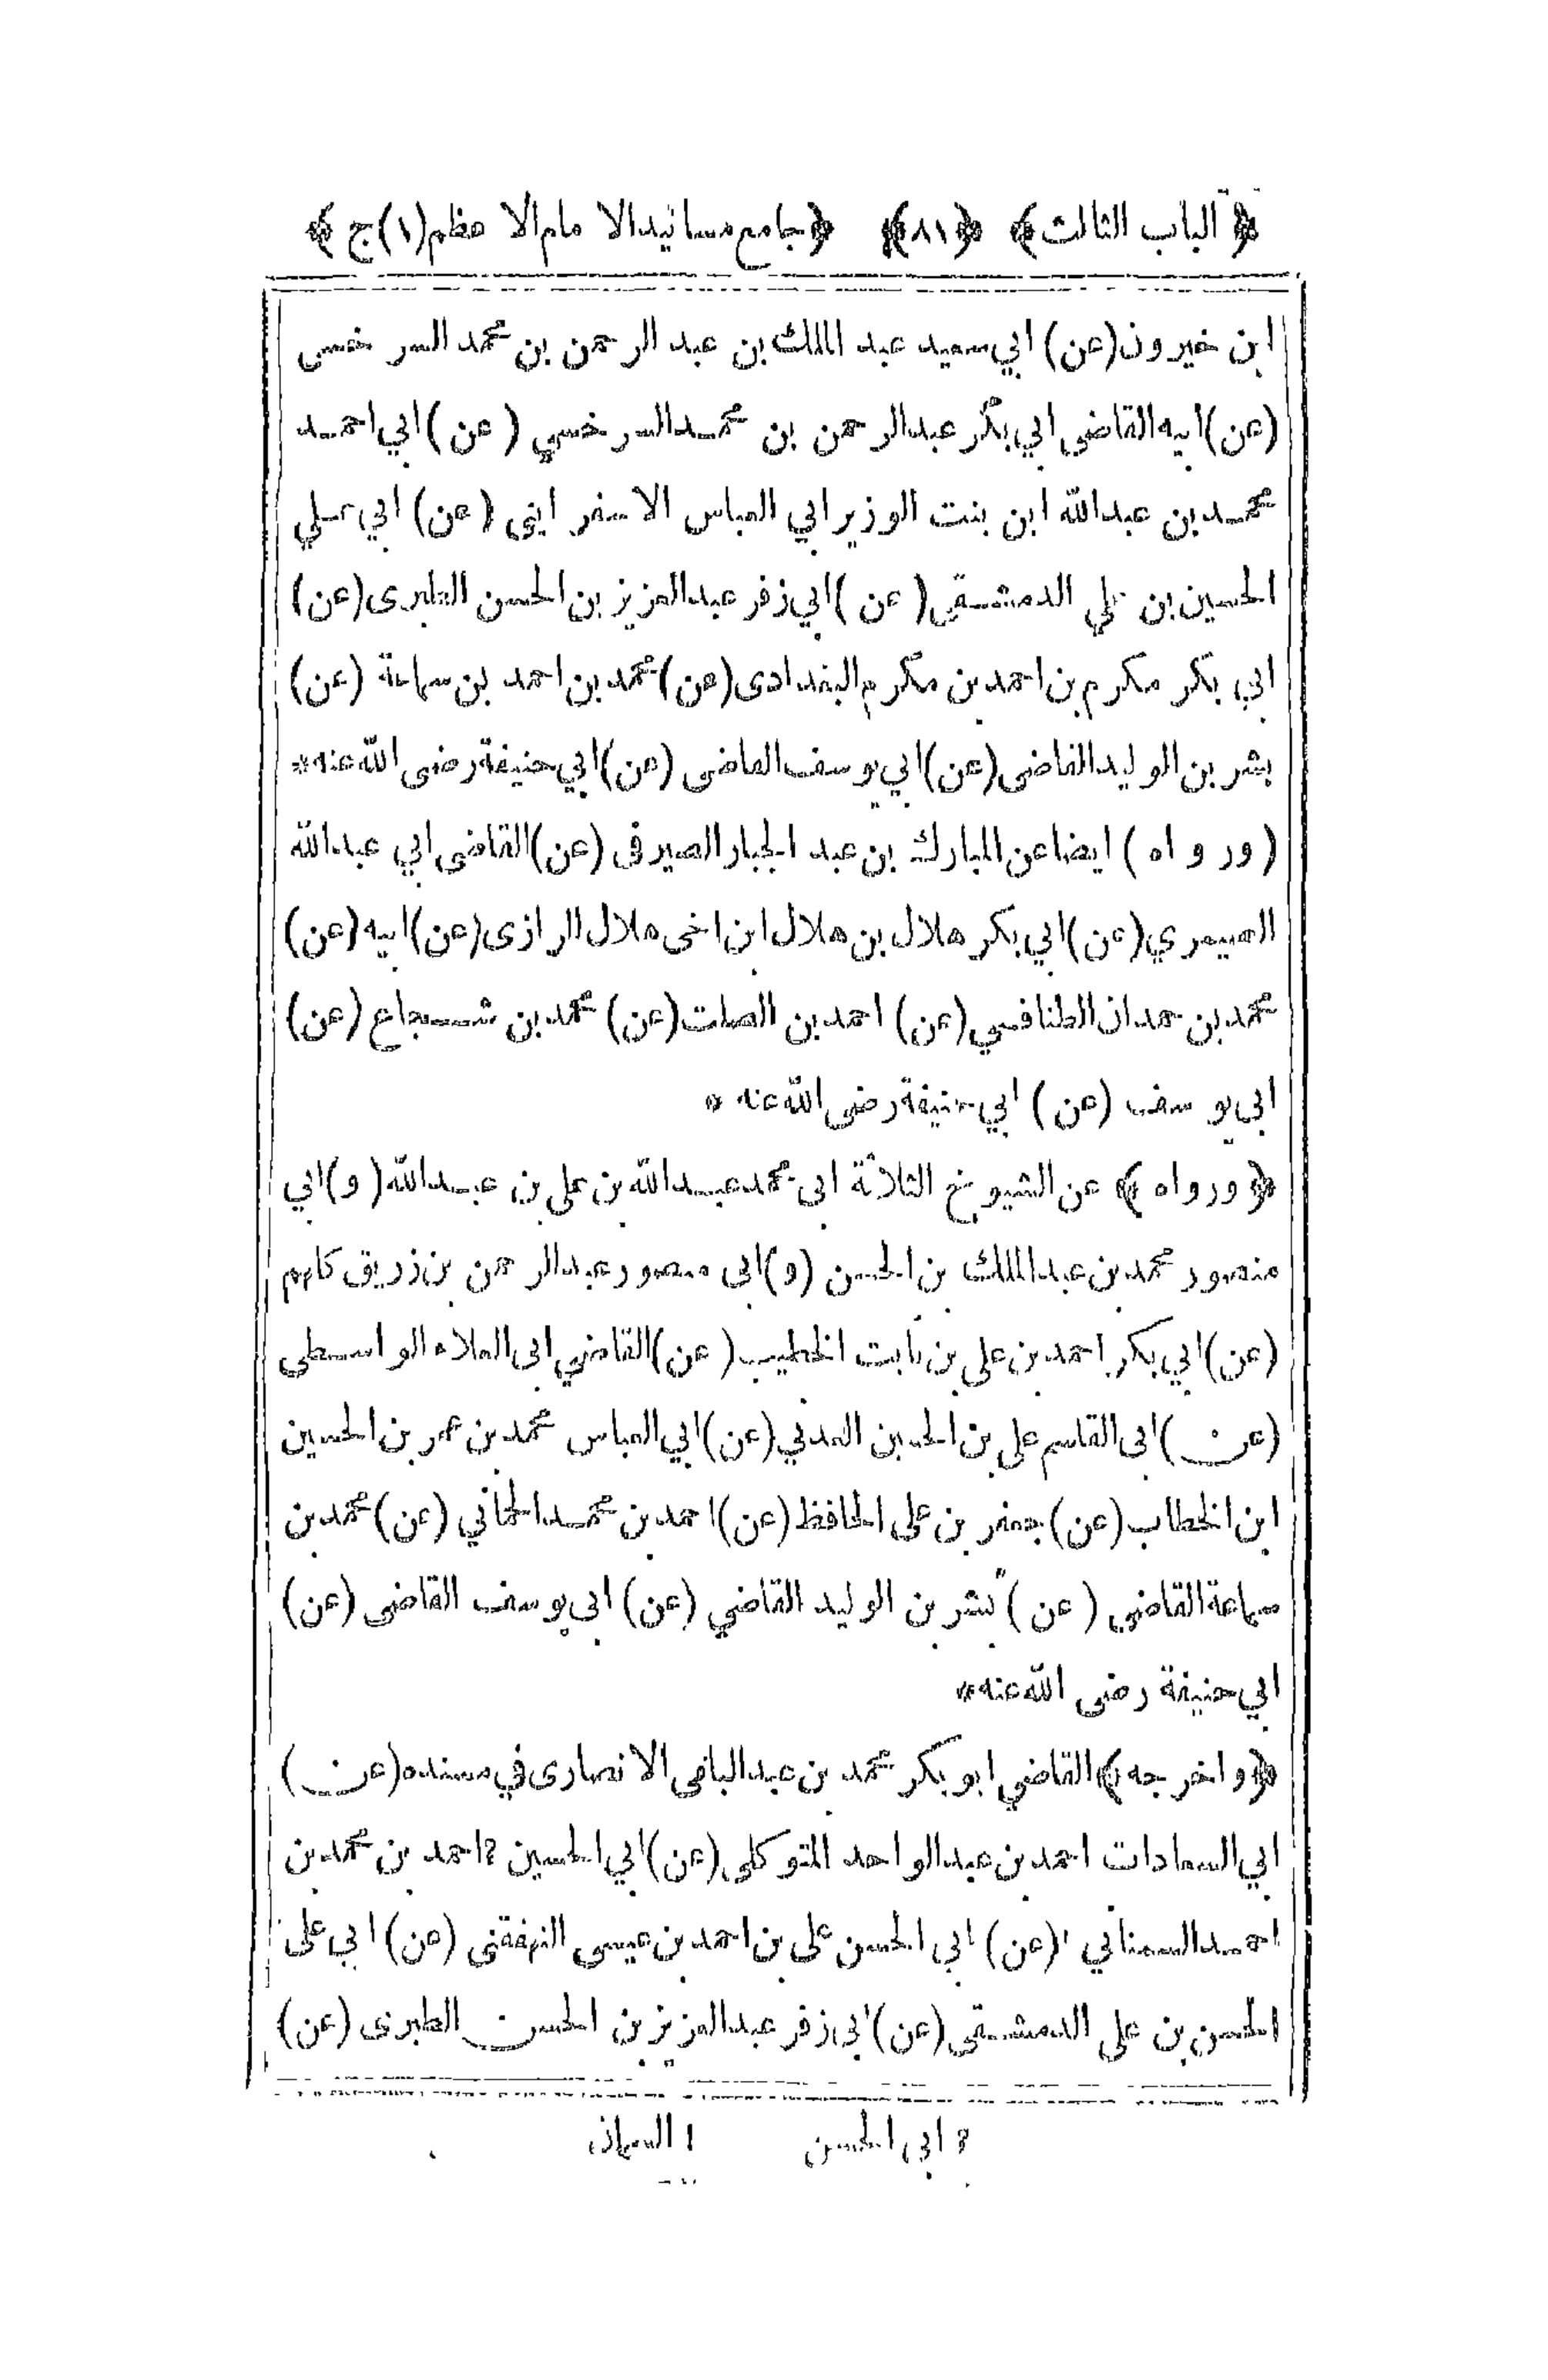 ﴿ الباب الثالث ﴾ ﴿٨١﴾ ﴿جامع مسانيد الامام الاعظم(١)ج ﴾
ابن خيرون(عن) ابي سعيد عبد الملك بن عبد الرحمن بن محمد السرخسى
(عن)ابيه القاضى ابي بكر عبدالرحمن بن محمد السرخسي (عن)ابي احمد
محمد بن عبدالله ابن بنت الوزير ابي العباس الاسفرايني (عن) ابي علي
الحسين بن علي الدمشقي(عن)ابي زفر عبدالعزيز بن الحسن الطبرى(عن)
ابي بكر مكرم بن احمد بن مكرم البغدادى(عن)محمد بن احمد بن سماعة (عن)
بشر بن الوليد القاضى(عن)ابي يوسف القاضى (عن)ابي حنيفة رضى الله عنه*
(ورواه) ايضا عن المبارك بن عبد الجبار الصيرفى (عن)القاضى ابي عبدالله
الصيمري(عن)ابي بكر هلال بن هلال ابن اخى هلال الرازى(عن)ابيه(عن)
محمد بن حمدان الطنافسي(عن) احمد بن الصلت(عن) محمد بن شجاع (عن)
ابى يوسف (عن) ابي حنيفة رضى الله عنه *
﴿ورواه﴾ عن الشيوخ الثلاثة ابى محمد عبدالله بن على بن عبدالله(و)ابي
منصور محمد بن عبدالملك بن الحسن (و)ابى منصور عبدالرحمن بن زريق كلهم
(عن)ابي بكر احمد بن على بن ثابت الخطيب(عن)القاضي ابى العلاء الواسطى
(عن)ابى القاسم على بن الحسين العدني(عن)ابي العباس محمد بن عمر بن الحسين
ابن الخطاب(عن)جعفر بن على الحافظ(عن)احمد بن محمد الحماني (عن)محمد بن
سماعة القاضي (عن) بشر بن الوليد القاضي (عن) ابى يوسف القاضى (عن)
ابي حنيفة رضى الله عنه*
﴿واخرجه﴾القاضي ابو بكر محمد بن عبدالباقى الانصارى في مسنده(عن)
ابي السعادات احمد بن عبدالواحد المتوكلى(عن)ابي الحسين ٢احمد بن محمد بن
احمد السمناني ١(عن) ابي الحسن على بن احمد بن عيسى (عن) ابي على
الحسن بن على الدمشقى(عن)ابى زفر عبدالعزيز بن الحسن الطبرى (عن)
٢ ابى الحسن ١ السمان